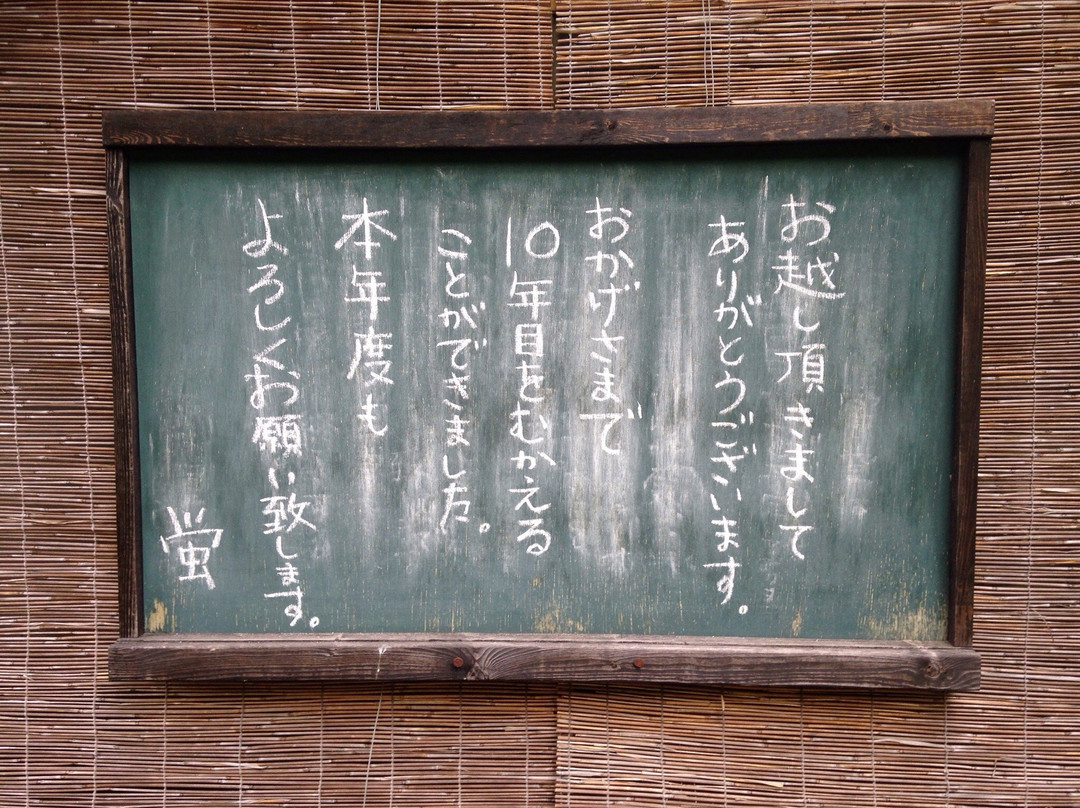 お越し頂きまして
ありがとうございます。
おかげさまで
10年目をむかえる
ことができました。
本年度も
よろしくお願い致します。
蛍